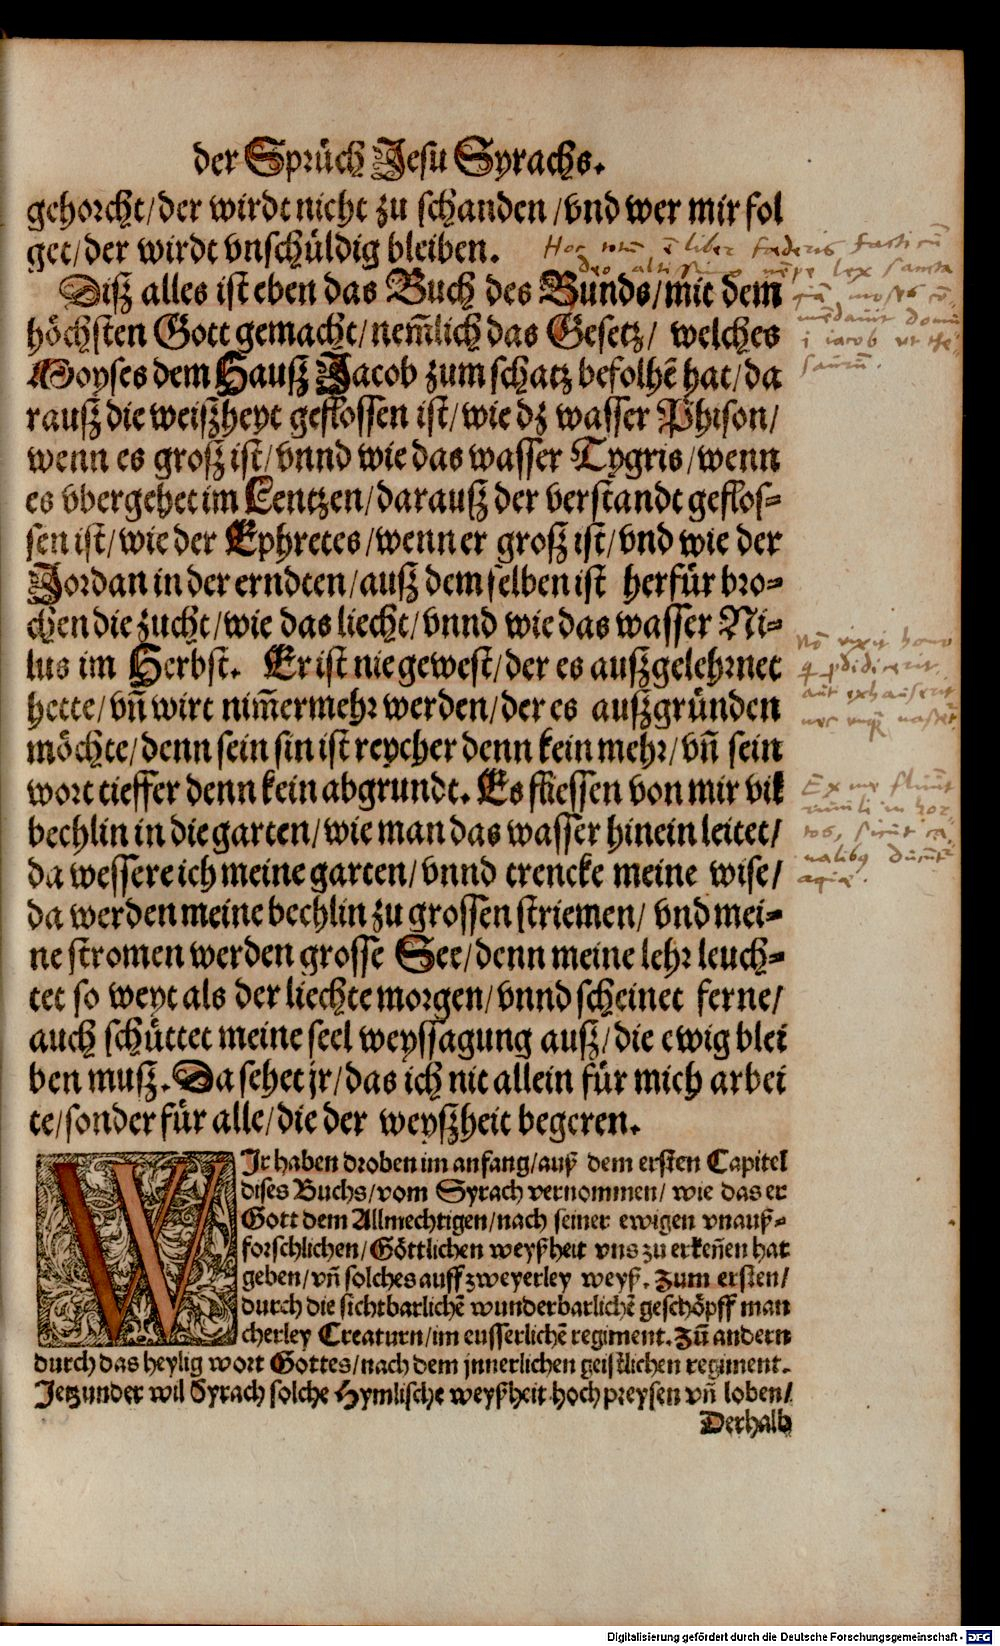 der Sprüch Jesu Syrachs.
gehorcht/der wirdt nicht zu schanden/vnd wer mir fol
get/der wirdt vnschüldig bleiben.
Hoc totū ē liber foederis facti cū
deo altissimo nēpe lex sancta
Disz alles ist eben das Buch des Bunds/mit dem
höchsten Gott gemacht/nem̄lich das Gesetz/ welches
Moyses dem Hausz Jacob zum schatz befolhē hat/da
quā moses cō-
mēdauit domui
iacob vt the-
saurū.
rausz die weiszheyt geflossen ist/wie dz wasser Phison/
wenn es grosz ist/vnnd wie das wasser Tygris/wenn
es vbergehet im Lentzen/darausz der verstandt geflos-
sen ist/wie der Ephretes/wenn er grosz ist/vnd wie der
Jordan in der erndten/ausz dem selben ist herfür bro-
chen die zucht/wie das liecht/vnnd wie das wasser Ni-
lus im Herbst. Er ist nie gewest/der es auszgelehrnet
hette/vn̄ wirt nim̄ermehr werden/der es auszgründen
möchte/denn sein sin ist reycher denn kein mehr/vn̄ sein
Nō vixit homo
q pdidicerit
aut exhauserit
nec
wort tieffer denn kein abgrundt. Es fliessen von mir vil
bechlin in die garten/wie man das wasser hinein leitet/
da wessere ich meine garten/vnnd trencke meine wise/
Ex me fluūt
riuuli in hor-
tos, sicut ca-
nalibq ducūt-
aquae.
da werden meine bechlin zu grossen striemen/ vnd mei-
ne stromen werden grosse See/denn meine lehr leuch-
tet so weyt als der liechte morgen/vnnd scheinet ferne/
auch schüttet meine seel weyssagung ausz/die ewig blei
ben musz. Da sehet jr/das ich nit allein für mich arbei
te/sonder für alle/die der weyszheit begeren.
WJr haben droben im anfang/auß dem ersten Capitel
dises Buchs/vom Syrach vernommen/ wie das er
Gott dem Allmechtigen/nach seiner ewigen vnauß-
forschlichen/Göttlichen weyßheit vns zu erken̄en hat
geben/vn̄ solches auff zweyerley weyß. Zum ersten/
durch die sichtbarlichē wunderbarlichē geschöpff man
cherley Creaturn/im eusserlichē regiment. Zū andern
durch das heylig wort Gottes/nach dem jnnerlichen geistlichen regiment.
Jetzunder wil Syrach solche Hymlische weyßheit hoch preysen vn̄ loben/
Derhalb
Digitalisierung gefördert durch die Deutsche Forschungsgemeinschaft - DFG